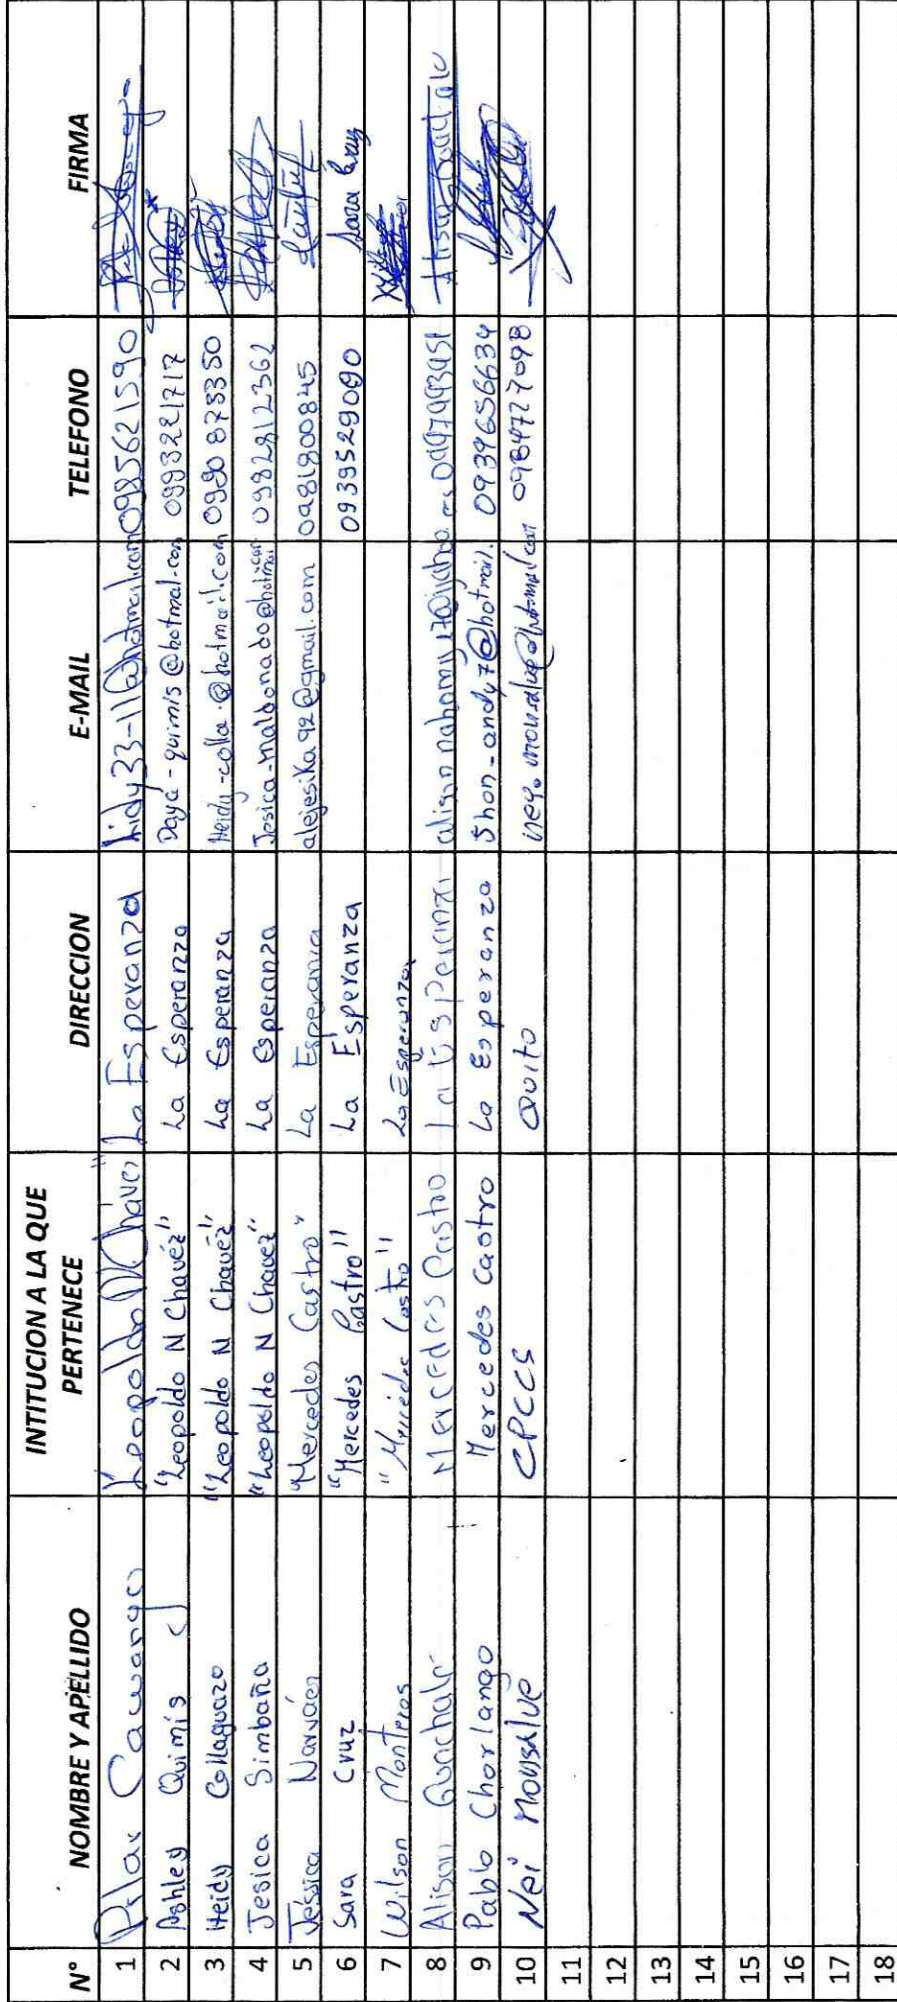 N° NOMBRE Y APELLIDO INTITUCION A LA QUE PERTENECE DIRECCION E-MAIL TELEFONO FIRMA
1 Pilar Cacuango Leopoldo N Chávez" La Esperanza hidy33-11@hotmail.com 0985621590
2 Ashley Quimis "Leopoldo N Chavéz" La Esperanza Daya-quimis@hotmal.com 0993221717
3 Heidy Collaguazo "Leopoldo N Chavéz" La Esperanza Heidy-colla.@hotmail.com 0990873350
4 Jesica Simbaña "Leopoldo N Chavez" La Esperanza Jesica-maldonado@hotmail.com 0982812362
5 Jessica Narváez "Mercedes Castro" La Esperanza alejesika92@gmail.com 0981800845
6 Sara Cruz "Mercedes Castro" La Esperanza 0939529090 Sara Cruz
7 Wilson Monteros "Mercedes Castro" La Esperanza
8 Alison Mercedes Castro La Esperanza
9 Pablo Chorlango Mercedes Castro La Esperanza Shon-andy7@hotmail. 0939656634
10 Nei Monsalve CPCCS Quito 0984727098
11
12
13
14
15
16
17
18